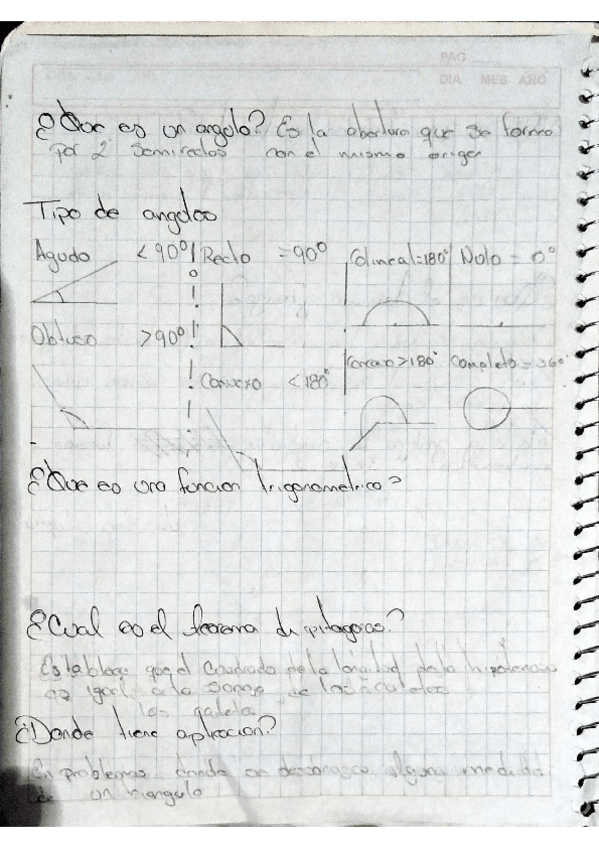 PAG
DIA MES AÑO
¿Que es un angulo? Es la abertura que se forma
por 2 semirectas con el mismo origen
Tipo de angulos
Agudo <90° Recto =90° Colineal=180° Nulo = 0°
Obtuso >90° Convexo <180° Concavo >180° Completo = 360°
¿Que es una funcion trigonometrica?
¿Cual es el teorema de pitagoras?
Establece que el cuadrado de la longitud de la hipotenusa
es igual a la suma de los catetos
¿Donde tiene aplicacion?
En problemas donde se desconozca alguna medida
de un triangulo